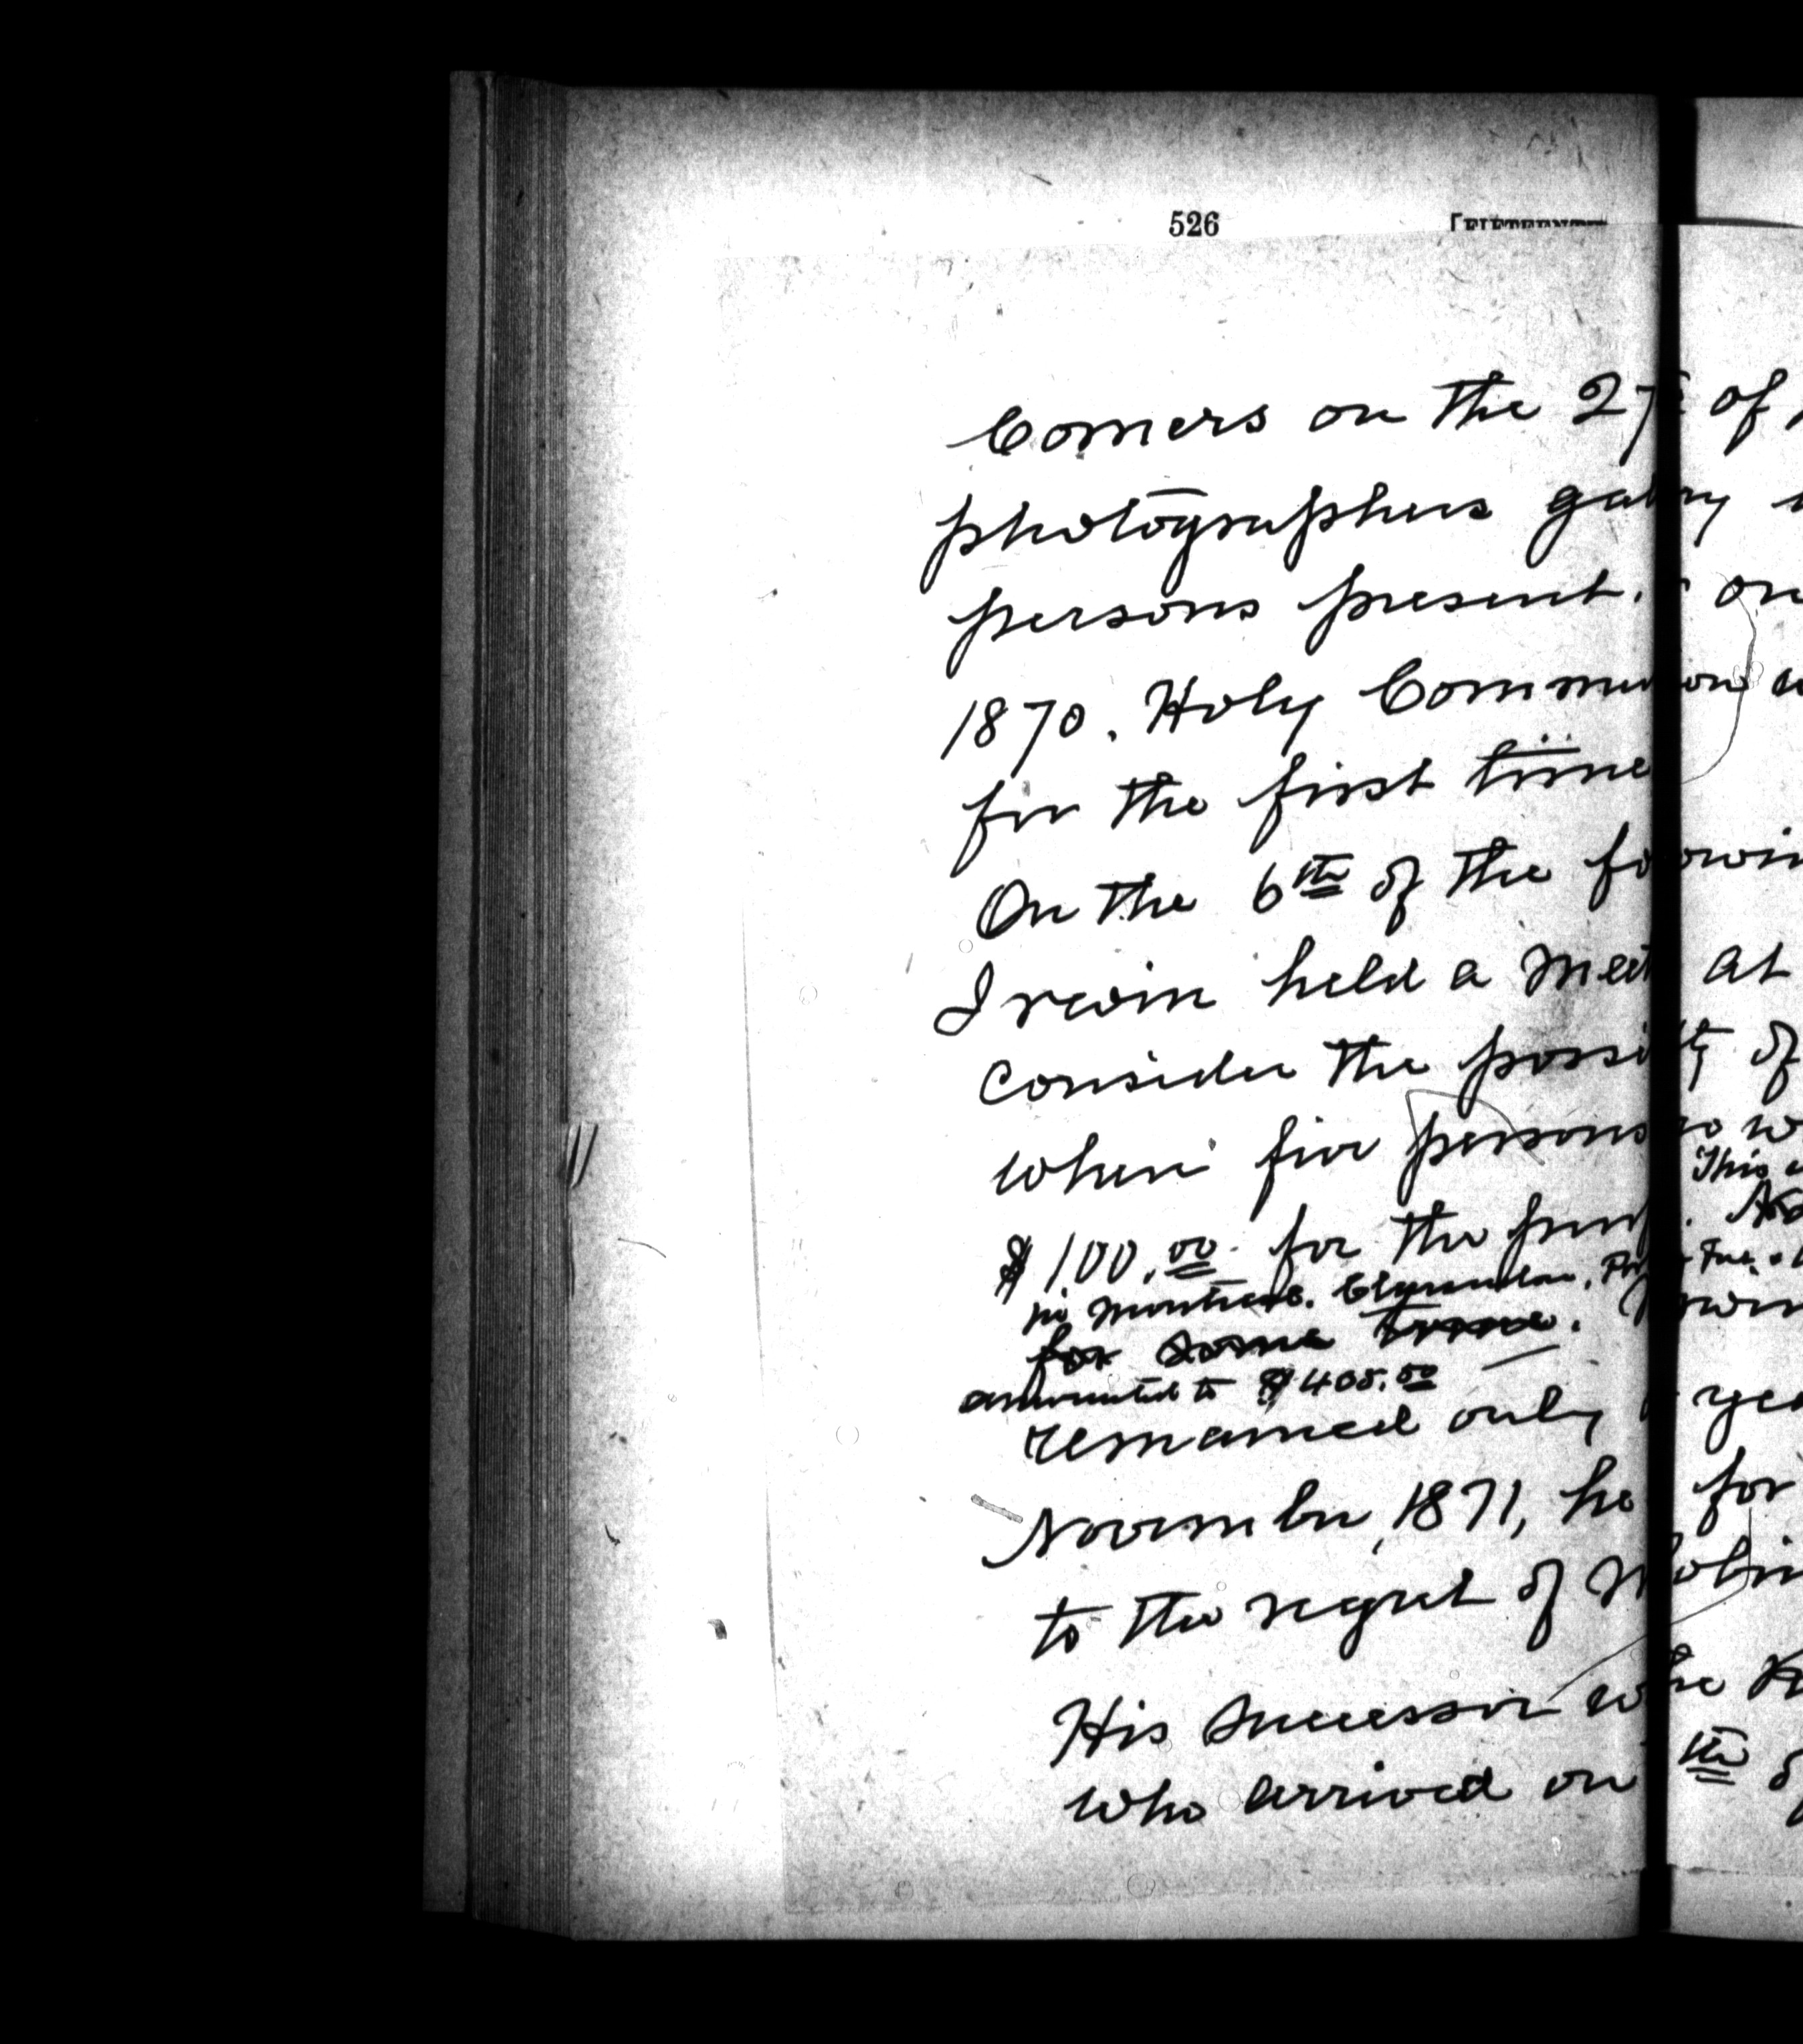 526
Corners on the 27 of
photographers gallery
persons present. on
1870. Holy Communion
for the first time
On the 6th of the
Irwin held a meet at
consider the possi ty of
when five persons w
This
$100.00 for the
in Montreal.
for some time.
amounted to $405.00
remained only yea
November, 1871, he for
to the regret of
His successor
who arrived on th